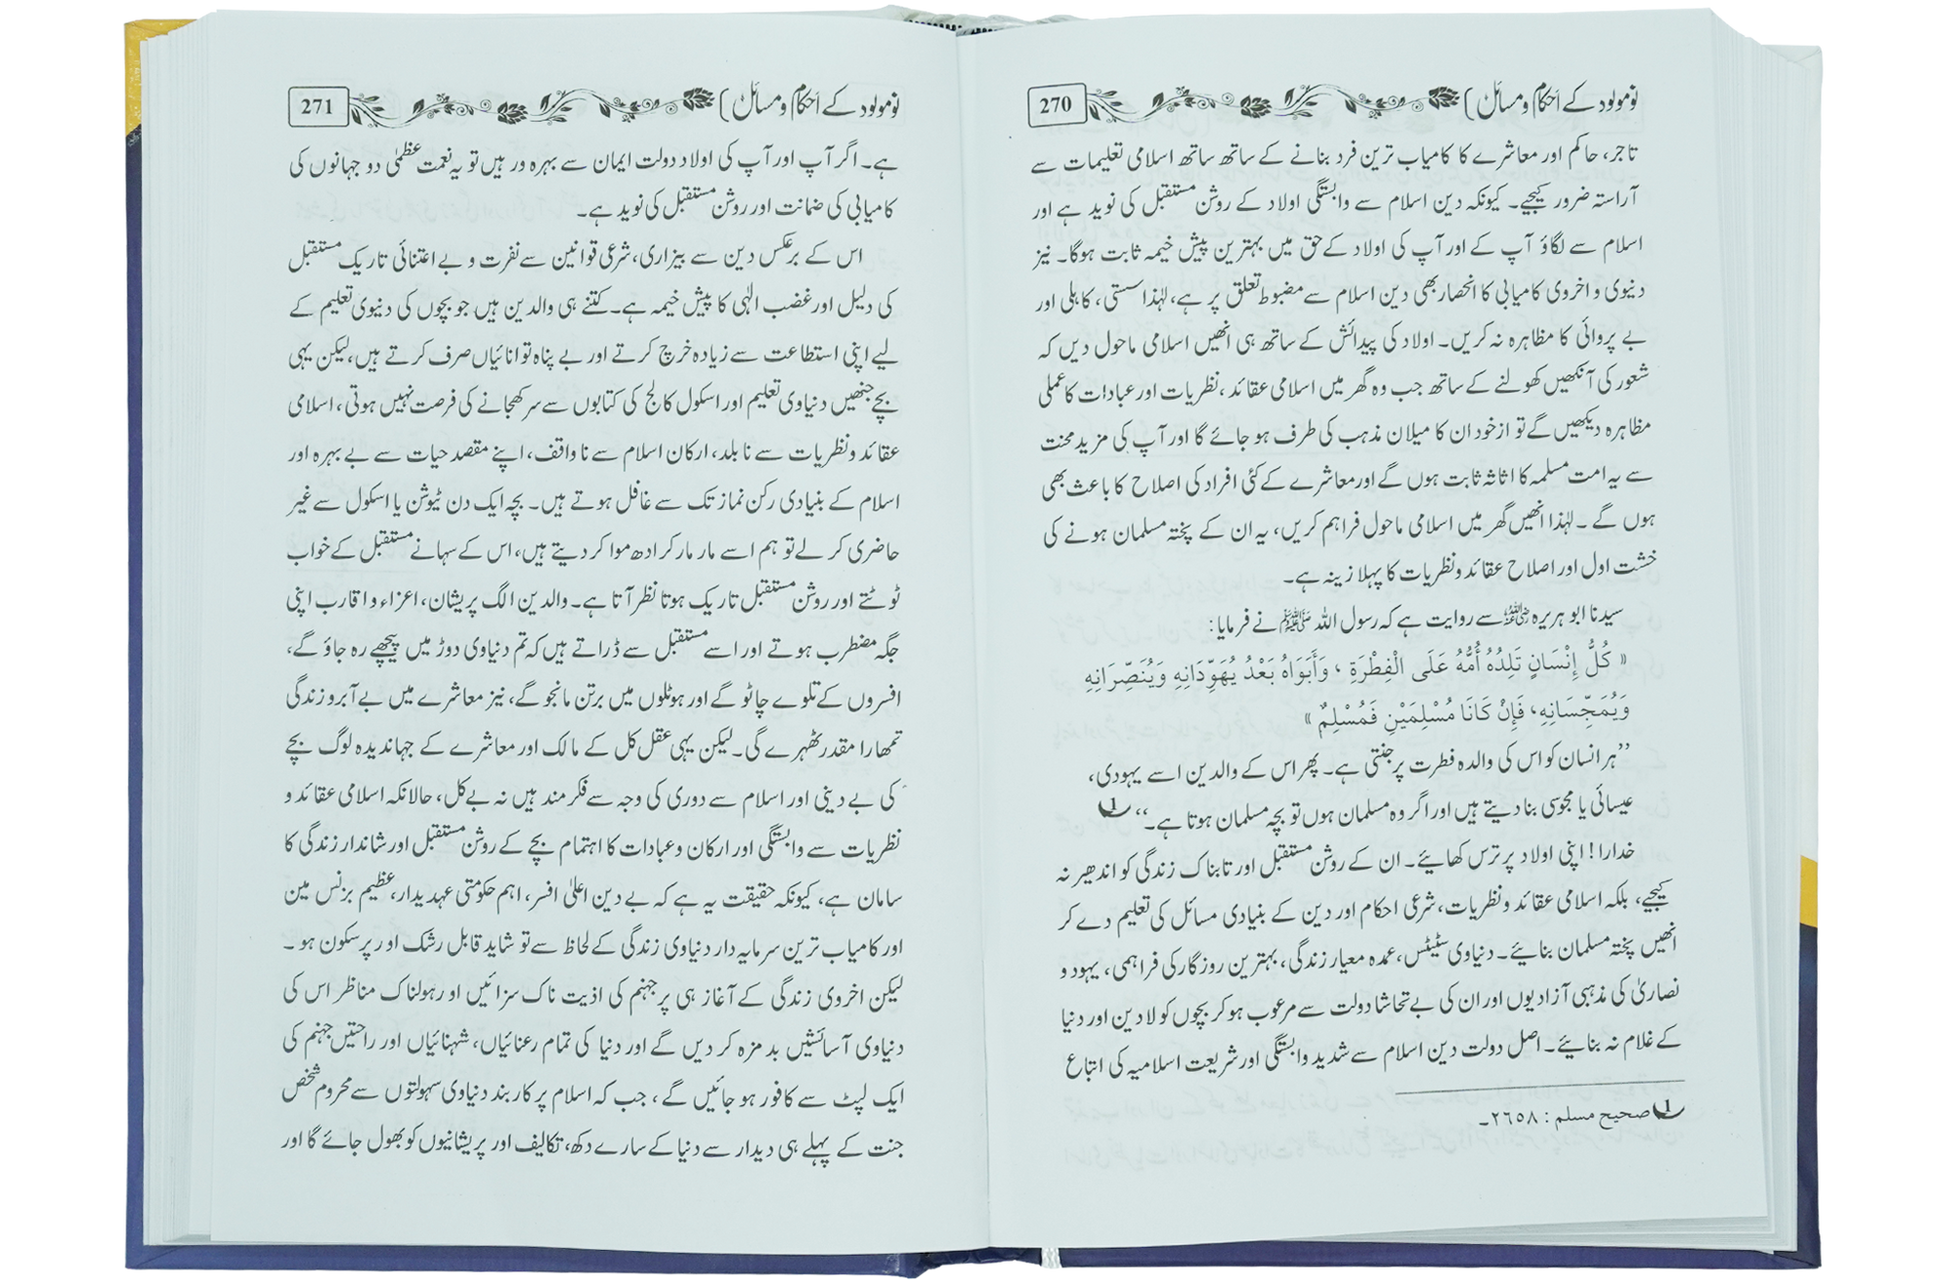 نومولود کے احکام و مسائل
270
تاجر، حاکم اور معاشرے کا کامیاب ترین فرد بنانے کے ساتھ ساتھ اسلامی تعلیمات سے
آراستہ ضرور کیجیے۔ کیونکہ دین اسلام سے وابستگی اولاد کے روشن مستقبل کی نوید ہے اور
اسلام سے لگاؤ آپ کے اور آپ کی اولاد کے حق میں بہترین پیش خیمہ ثابت ہوگا۔ نیز
دنیوی و اخروی کامیابی کا انحصار بھی دین اسلام سے مضبوط تعلق پر ہے، لہٰذا سستی، کاہلی اور
بے پروائی کا مظاہرہ نہ کریں۔ اولاد کی پیدائش کے ساتھ ہی انھیں اسلامی ماحول دیں کہ
شعور کی آنکھیں کھولنے کے ساتھ جب وہ گھر میں اسلامی عقائد، نظریات اور عبادات کا عملی
مظاہرہ دیکھیں گے تو از خود ان کا میلان مذہب کی طرف ہو جائے گا اور آپ کی مزید محنت
سے یہ امت مسلمہ کا اثاثہ ثابت ہوں گے اور معاشرے کے کئی افراد کی اصلاح کا باعث بھی
ہوں گے۔ لہٰذا انھیں گھر میں اسلامی ماحول فراہم کریں، یہ ان کے پختہ مسلمان ہونے کی
خشت اول اور اصلاح عقائد و نظریات کا پہلا زینہ ہے۔
سیدنا ابو ہریرہ رضی اللہ عنہ سے روایت ہے کہ رسول اللہ ﷺ نے فرمایا:
« كُلُّ إِنْسَانٍ تَلِدُهُ أُمُّهُ عَلَى الْفِطْرَةِ ، وَأَبَوَاهُ بَعْدُ يُهَوِّدَانِهِ وَيُنَصِّرَانِهِ
وَيُمَجِّسَانِهِ، فَإِنْ كَانَا مُسْلِمَيْنِ فَمُسْلِمٌ »
’’ہر انسان کو اس کی والدہ فطرت پر جنتی ہے۔ پھر اس کے والدین اسے یہودی،
عیسائی یا مجوسی بنا دیتے ہیں اور اگر وہ مسلمان ہوں تو بچہ مسلمان ہوتا ہے۔‘‘ 1
خدارا! اپنی اولاد پر ترس کھائیے۔ ان کے روشن مستقبل اور تابناک زندگی کو اندھیر نہ
کیجیے، بلکہ اسلامی عقائد و نظریات، شرعی احکام اور دین کے بنیادی مسائل کی تعلیم دے کر
انھیں پختہ مسلمان بنائیے۔ دنیاوی سٹیٹس، عمدہ معیار زندگی، بہترین روزگار کی فراہمی، یہود و
نصاریٰ کی مذہبی آزادیوں اور ان کی بے تحاشا دولت سے مرعوب ہو کر بچوں کو لادین اور دنیا
کے غلام نہ بنائیے۔ اصل دولت دین اسلام سے شدید وابستگی اور شریعت اسلامیہ کی اتباع
1 صحیح مسلم : ٢٦٥٨۔
نومولود کے احکام و مسائل
271
ہے۔ اگر آپ اور آپ کی اولاد دولت ایمان سے بہرہ ور ہیں تو یہ نعمت عظمٰی دو جہانوں کی
کامیابی کی ضمانت اور روشن مستقبل کی نوید ہے۔
اس کے برعکس دین سے بیزاری، شرعی قوانین سے نفرت و بے اعتنائی تاریک مستقبل
کی دلیل اور غضب الٰہی کا پیش خیمہ ہے۔ کتنے ہی والدین ہیں جو بچوں کی دنیوی تعلیم کے
لیے اپنی استطاعت سے زیادہ خرچ کرتے اور بے پناہ توانائیاں صرف کرتے ہیں، لیکن یہی
بچے جنھیں دنیاوی تعلیم اور اسکول کالج کی کتابوں سے سر کھجانے کی فرصت نہیں ہوتی، اسلامی
عقائد و نظریات سے نابلد، ارکان اسلام سے ناواقف، اپنے مقصد حیات سے بے بہرہ اور
اسلام کے بنیادی رکن نماز تک سے غافل ہوتے ہیں۔ بچہ ایک دن ٹیوشن یا اسکول سے غیر
حاضری کر لے تو ہم اسے مار مار کر ادھ موا کر دیتے ہیں، اس کے سہانے مستقبل کے خواب
ٹوٹتے اور روشن مستقبل تاریک ہوتا نظر آتا ہے۔ والدین الگ پریشان، اعزاء و اقارب اپنی
جگہ مضطرب ہوتے اور اسے مستقبل سے ڈراتے ہیں کہ تم دنیاوی دوڑ میں پیچھے رہ جاؤ گے،
افسروں کے تلوے چاٹو گے اور ہوٹلوں میں برتن مانجو گے، نیز معاشرے میں بے آبرو زندگی
تمھارا مقدر ٹھہرے گی۔ لیکن یہی عقل کل کے مالک اور معاشرے کے جہاندیدہ لوگ بچے
کی بے دینی اور اسلام سے دوری کی وجہ سے فکر مند ہیں نہ بے کل، حالانکہ اسلامی عقائد و
نظریات سے وابستگی اور ارکان و عبادات کا اہتمام بچے کے روشن مستقبل اور شاندار زندگی کا
سامان ہے، کیونکہ حقیقت یہ ہے کہ بے دین اعلیٰ افسر، اہم حکومتی عہدیدار، عظیم بزنس مین
اور کامیاب ترین سرمایہ دار دنیاوی زندگی کے لحاظ سے تو شاید قابل رشک اور پرسکون ہو۔
لیکن اخروی زندگی کے آغاز ہی پر جہنم کی اذیت ناک سزائیں اور ہولناک مناظر اس کی
دنیاوی آسائشیں بد مزہ کر دیں گے اور دنیا کی تمام رعنائیاں، شہنائیاں اور راحتیں جہنم کی
ایک لپٹ سے کافور ہو جائیں گے، جب کہ اسلام پر کاربند دنیاوی سہولتوں سے محروم شخص
جنت کے پہلے ہی دیدار سے دنیا کے سارے دکھ، تکالیف اور پریشانیوں کو بھول جائے گا اور